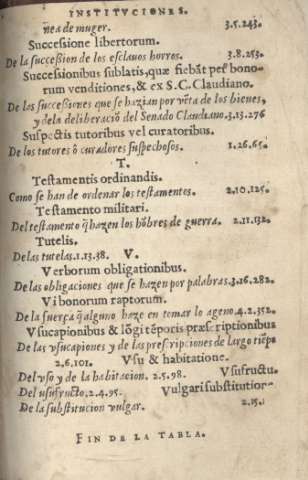 INSTITVCIONES.
ñea de muger. 3.5.243.
Successione libertorum.
De la succession de los esclauos horros. 3.8.253.
Successionibus sublatis, quæ fiebãt per bono-
rum venditiones, & ex S.C. Claudiano.
De las successiones que se hazian por vẽta de los bienes,
y de la deliberaciõ del Senado Claudiano. 3.13.276
Suspectis tutoribus vel curatoribus.
De los tutores ò curadores suspechosos. 1.26.65.
T.
Testamentis ordinandis.
Como se han de ordenar los testamentos. 2.10.125.
Testamento militari.
Del testamento q̃ hazen los hõbres de guerra. 2.11.132.
Tutelis.
De las tutelas. 1.13.38. V.
Verborum obligationibus.
De las obligaciones que se hazen por palabras. 3.16.282.
Vi bonorum raptorum.
De la fuerça q̃ alguno haze en tomar lo ageno. 4.2.352.
Vsucapionibus & lõgi tẽporis præscriptionibus
De las vsucapiones y de las prescripciones de largo tiẽpo
2.6.101. Vsu & habitatione.
Del vso y de la habitacion. 2.5.98. Vsufructu.
Del vsufructo. 2.4.95. Vulgari substitution
De la substitucion vulgar. 2.15.
FIN DE LA TABLA.